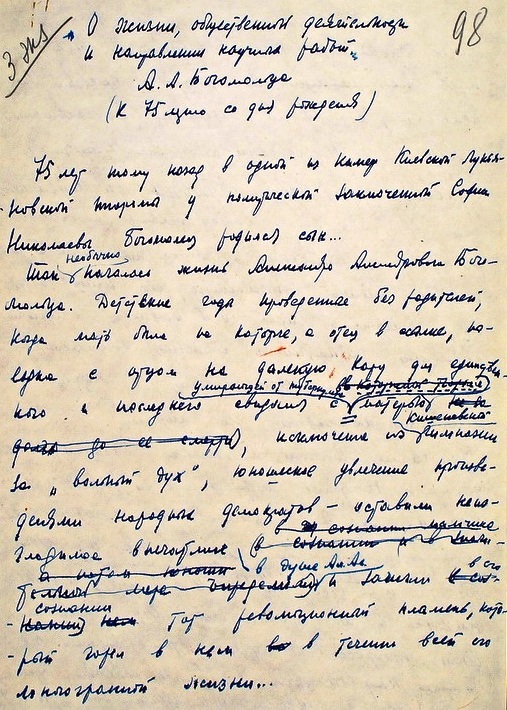 3 экз
98
О жизни, общественной деятельности
и направлении научных работ
А. А. Богомольца
(К 75 летию со дня рождения)
75 лет тому назад в одной из камер Киевской Лукья-
новской тюрьмы у политической заключенной Софии
Николаевны Богомолец родился сын...
необычно
Так началась жизнь Александра Александровича Бого-
мольца. Детские годы проведенные без родителей,
когда мать была на каторге, а отец в ссылке, по-
ездка с отцом на далекую Кару для единствен-
ного и последнего свидания с матерью
умирающей от туберкулеза
Кишиневской
исключение из гимназии
за "вольный дух", юношеское увлечение произве-
дениями народных демократов - оставили неиз-
гладимое впечатление
в душе А.А.
и зажгли в его
сознании
тот революционный пламень, кото-
рый горел в нем в течении всей его
многогранной жизни...